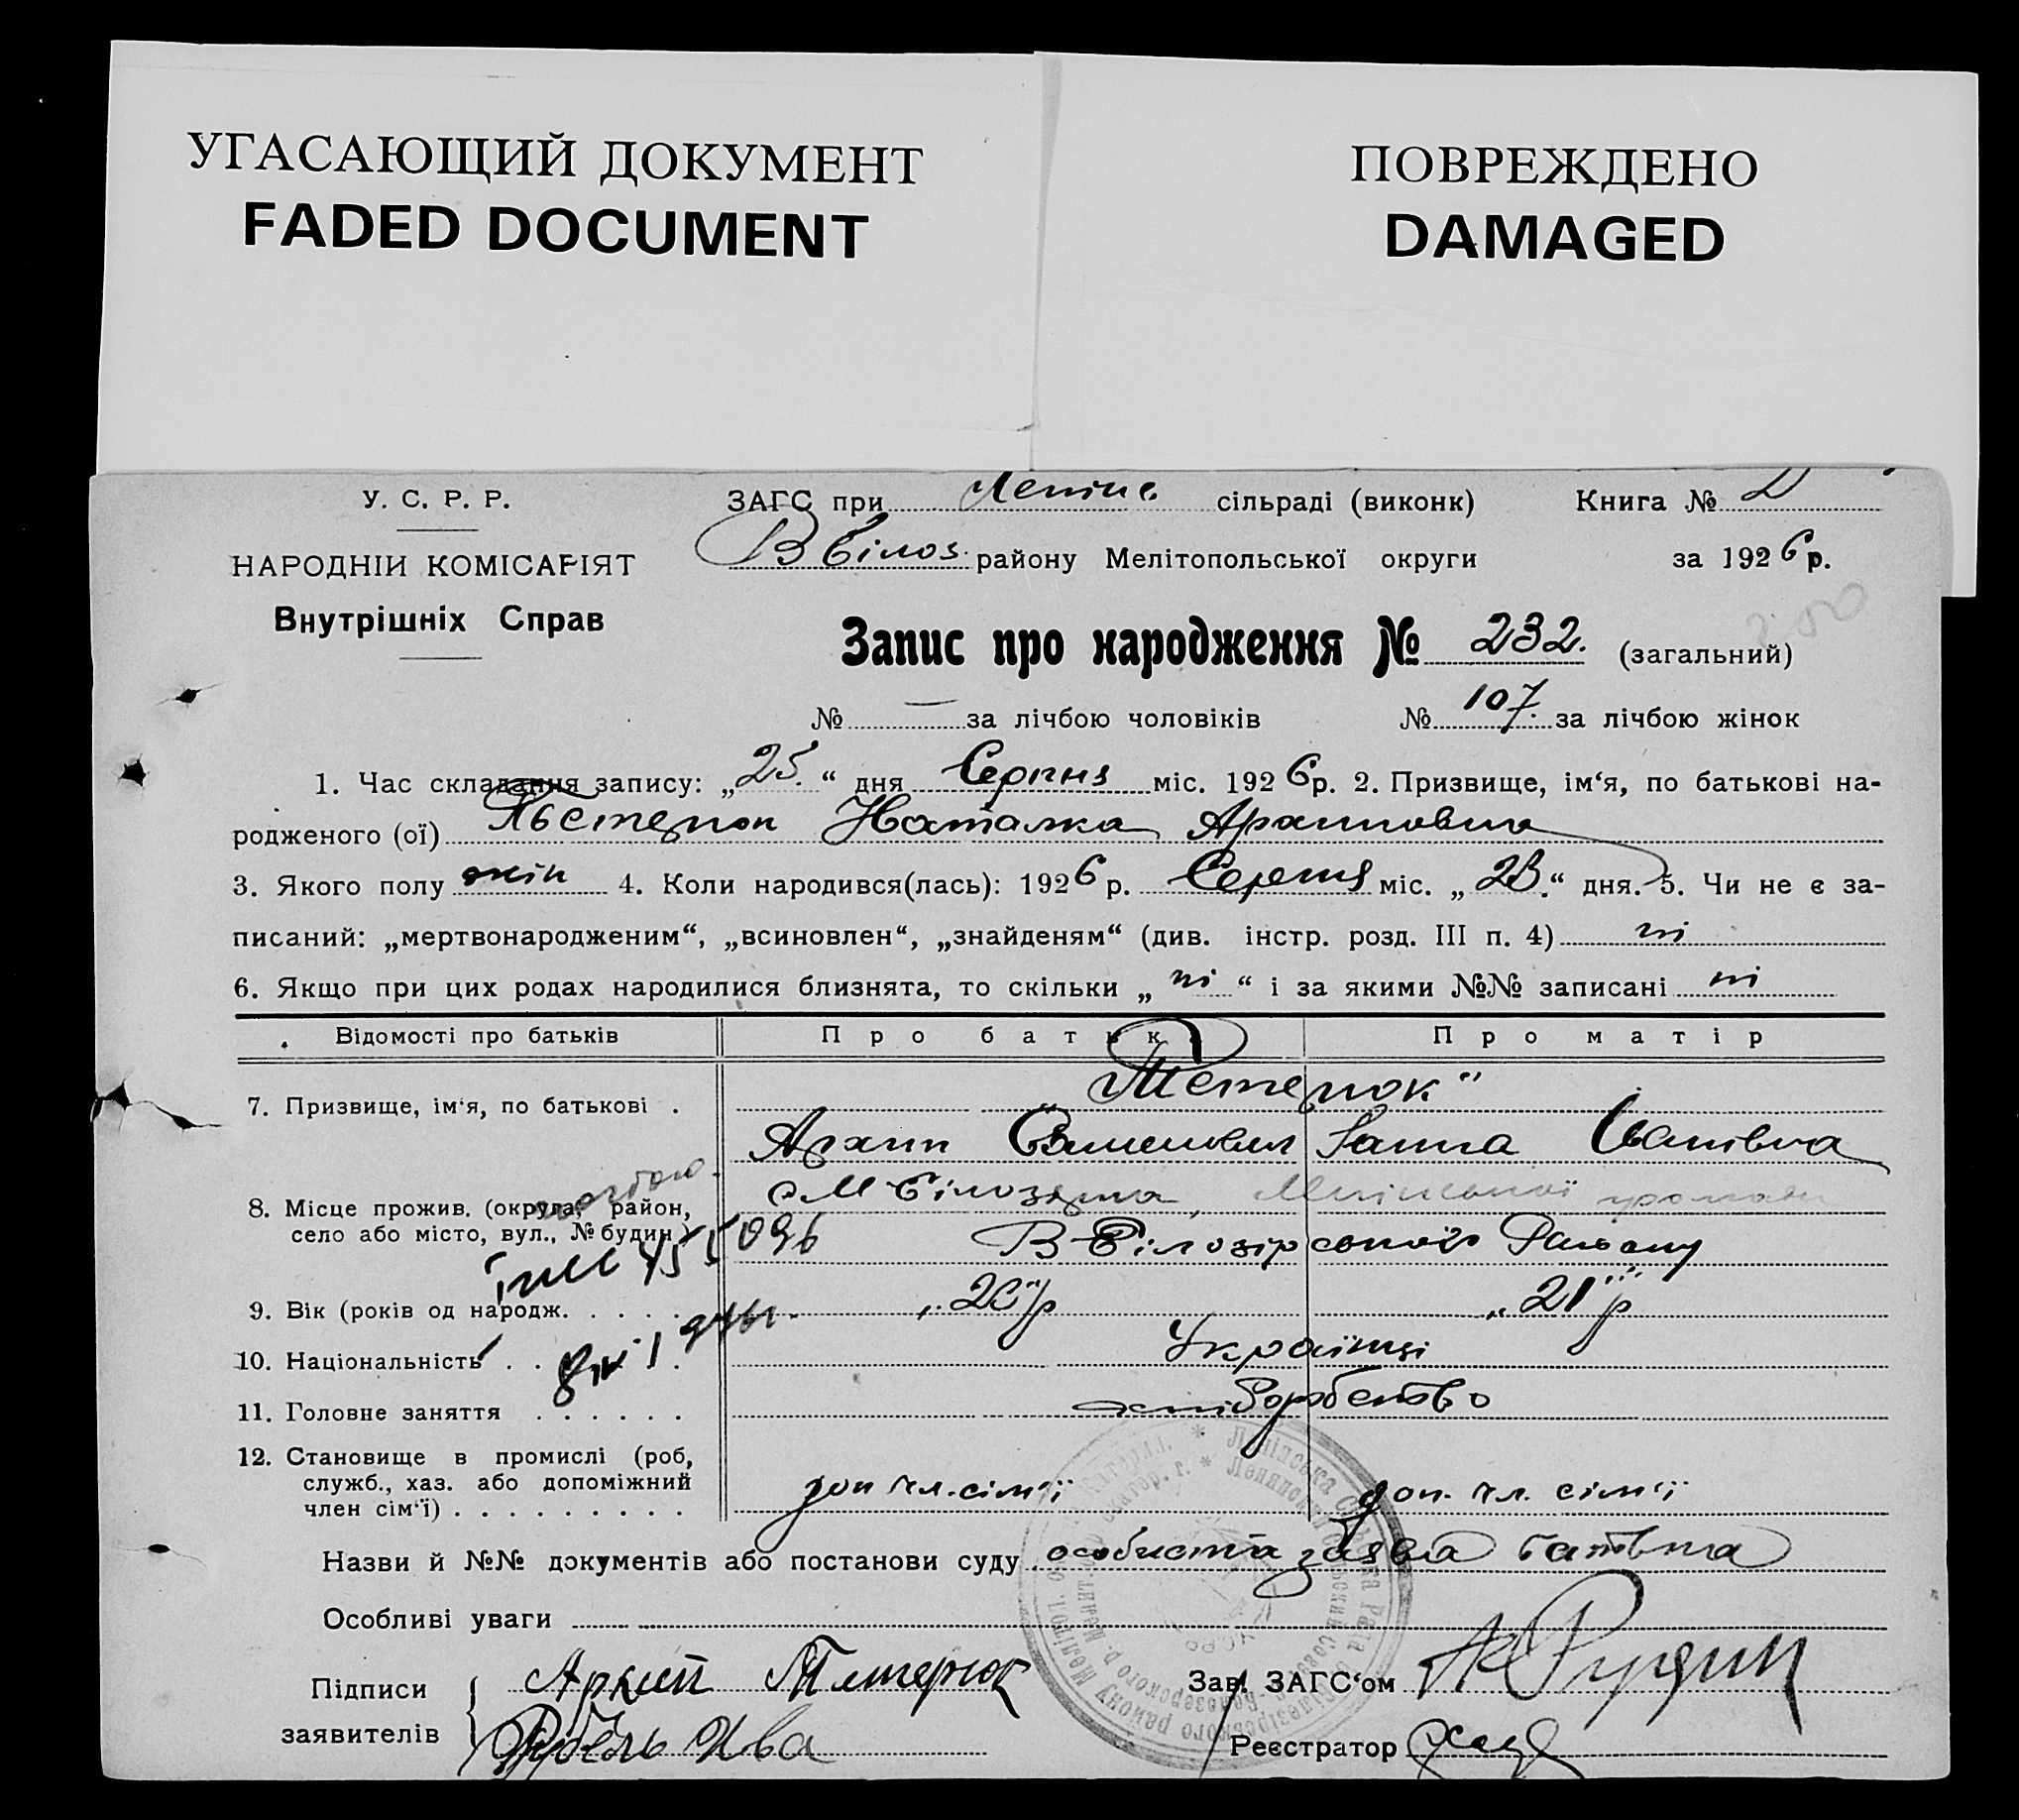 УГАСАЮЩИЙ ДОКУМЕНТ
FADED DOCUMENT
ПОВРЕЖДЕНО
DAMAGED
У. С. Р. Р.
НАРОДНІЙ КОМІСАРІЯТ
Внутрішніх Справ
ЗАГС при Ленінс. сільраді (виконк) Книга №
В Білоз. району Мелітопольської округи за 1926 р.
Запис про народження № 232. (загальний)
№ — за лічбою чоловіків № 107. за лічбою жінок
1. Час складання запису: „25.“ дня Серпня міс. 1926 р. 2. Призвище, ім‘я, по батькові на-
родженого (ої) Наталка Архиповна
3. Якого полу жін 4. Коли народився(лась): 1926 р. Серпня міс. „23.“ дня. 5. Чи не є за-
писаний: „мертвонародженим“, „всиновлен“, „знайденям“ (див. інстр. розд. III п. 4) ні
6. Якщо при цих родах народилися близнята, то скільки „ні“ і за якими №№ записані ні
Відомості про батьків Про батька Про матір
7. Призвище, ім‘я, по батькові .
Архип Ганна Іванівна
8. Місце прожив. (округа, район,
село або місто, вул., № будин.)
с М Білозірка
В Білозірського Району
9. Вік (років од народж. . . . . . „20“ р „21“ р
10. Національність . . . . . . Українці
11. Головне заняття . . . . . . хліборобство
12. Становище в промислі (роб,
служб., хаз. або допоміжний
член сім‘ї) . . . . . . . . . доп чл. сім'ї доп. чл. сім'ї
Назви й №№ документів або постанови суду особиста заява батька
Особливі уваги
Підписи
заявителів
Зав. ЗАГС‘ом
Реєстратор